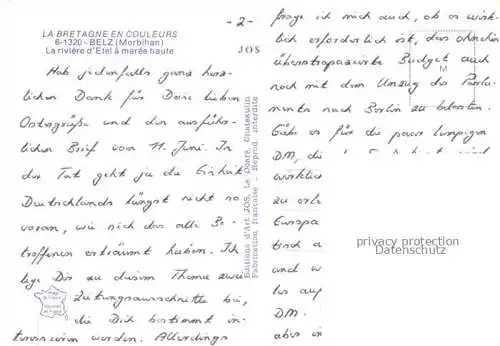 LA BRETAGNE EN COULEURS
6-1320 - BELZ (Morbihan)
La rivière d'Etel à marée haute
- 2 -
JOS
Hab jedenfalls ganz herz-
lichen Dank für Deine lieben
Ostergrüße und den ausführ-
lichen Brief vom 11. Juni. In
der Tat geht ja die Einheit
Deutschlands längst nicht so
voran, wie sich das alle Be-
troffenen erträumt haben. Ich
lege Dir zu diesem Thema zwei
Zeitungsausschnitte bei,
die Dich bestimmt in-
teressieren werden. Allerdings
Editions d'Art JOS, Le Doaré, Chateaulin
Fabrication française - Reprod. interdite
frage ich mich auch, ob es wirk-
lich erforderlich ist, das ohnehin
überstrapazierte Budget auch
noch mit dem Umzug des Parla-
ments nach Berlin zu belasten.
Gäbe es für die paar lumpigen
DM, die
wirklich
zu
Europa
tisch
und
los auf
DM.
aber
M
privacy protection
Datenschutz